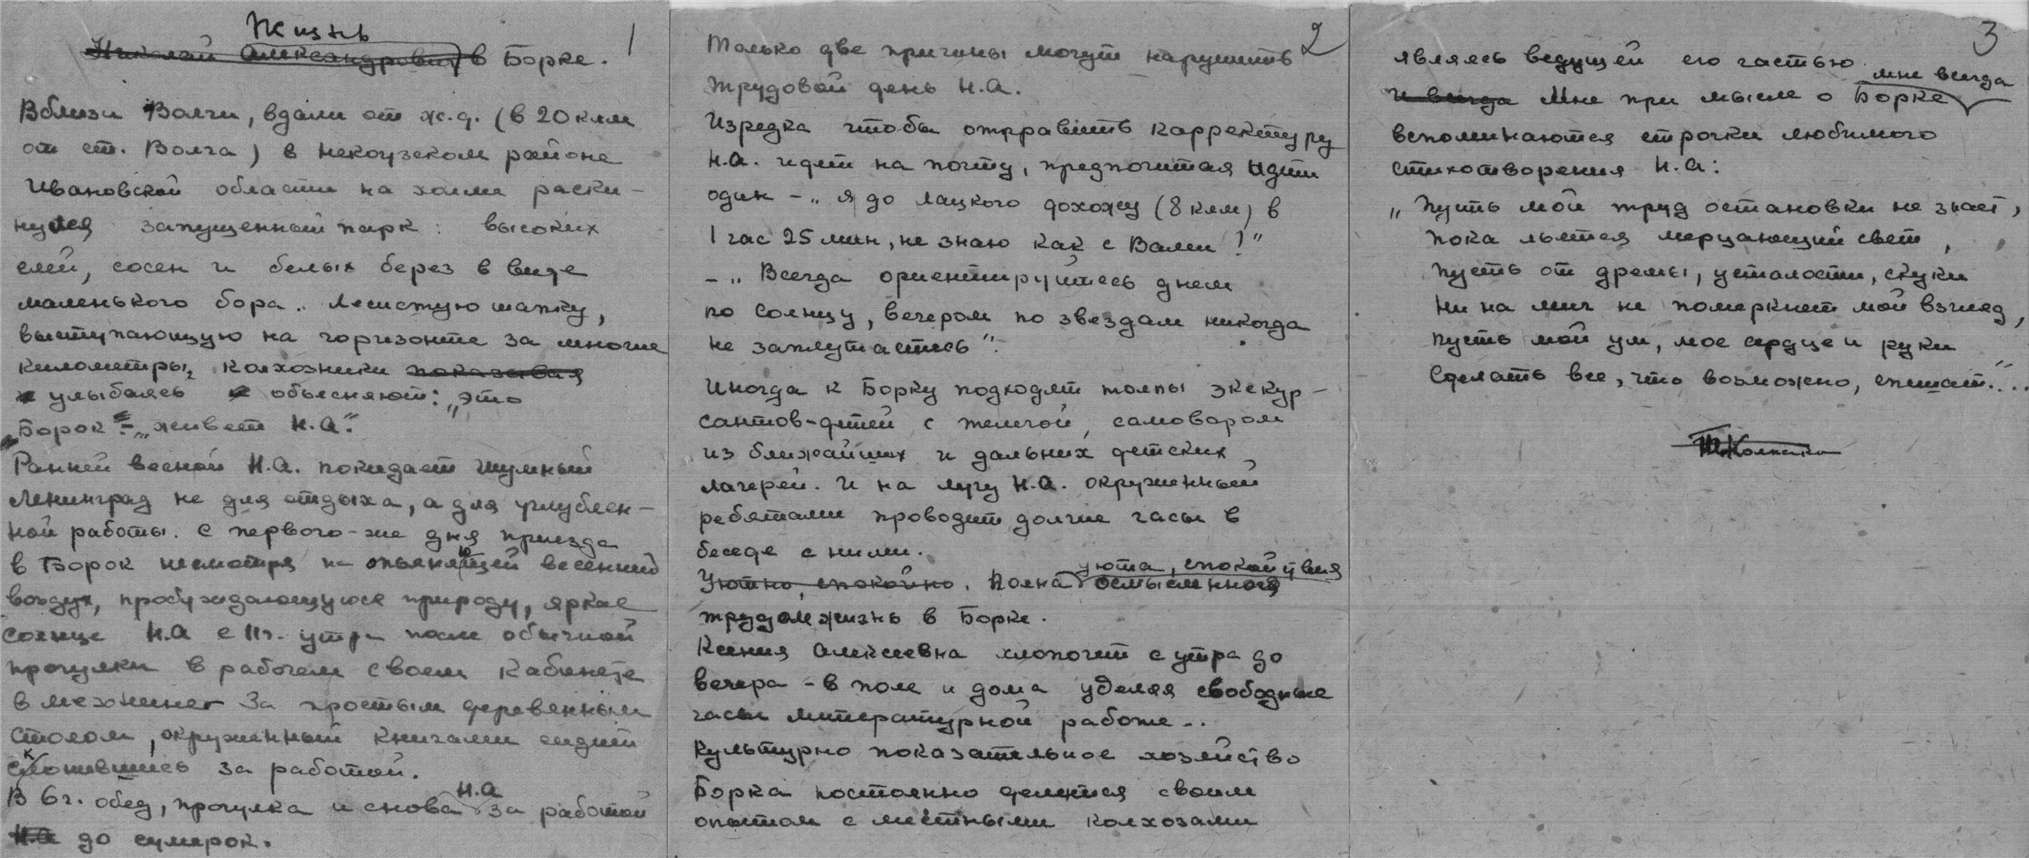 Жизнь
1
Николай Александрович в Борке.
Вблизи Волги, вдали от ж.д. (в 20 клм
от ст. Волга) в Некоузском районе
Ивановской области на холме раски-
нулся запущенный парк: высоких
елей, сосен и белых берез в виде
маленького бора.. Лесистую шапку,
выступающую на горизонте за многие
километры, колхозники показывая
улыбаясь объясняют: „это
Борок – „живет Н.А."
Ранней весной Н.А. покидает шумный
Ленинград не для отдыха, а для углублен-
ной работы. С первого-же дня приезда
в Борок несмотря на опьяняющей весенний
воздух, пробуждающуюся природу, яркое
солнце Н.А с 11г. утра после обычной
прогулки в рабочем своем кабинете
в мезонине За простым деревянным
столом, окруженный книгами сидит
склонившись за работой.
Н.А
В 6 г. обед, прогулка и снова за работой
Н.А до сумерок.
2
Только две причины могут нарушить
трудовой день Н.А.
Изредка чтобы отправить карректуру
Н.А. идет на почту, предпочитая идти
один – „я до Лацкого дохожу (8 клм) в
1 час 25 мин, не знаю как с Вами!"
– „Всегда ориентируйтесь днем
по солнцу, вечером по звездам никогда
не заплутаетесь".
Иногда к Борку подходят толпы экскур-
сантов-детей с телегой, самоваром
из ближайших и дальних детских
лагерей. И на лугу Н.А. окруженный
ребятами проводит долгие часы в
беседе с ними.
уюта, спокойствия
Уютно, спокойно. Полна осмысленного
трудом жизнь в Борке.
Ксения Алексеевна хлопочет с утра до
вечера – в поле и дома уделяя свободные
часы литературной работе...
Культурно показательное хозяйство
Борка постоянно делится своим
опытом с местными колхозами
3
являясь ведущей его частью.
мне всегда
И всегда Мне при мысле о Борке
вспоминаются строчки любимого
стихотворения Н.А:
„Пусть мой труд остановки не знает,
пока льется мерцающий свет,
пусть от дремы, усталости, скуки
ни на миг не померкнет мой взгляд,
пусть мой ум, мое сердце и руки
сделать все, что возможно, спешат."...